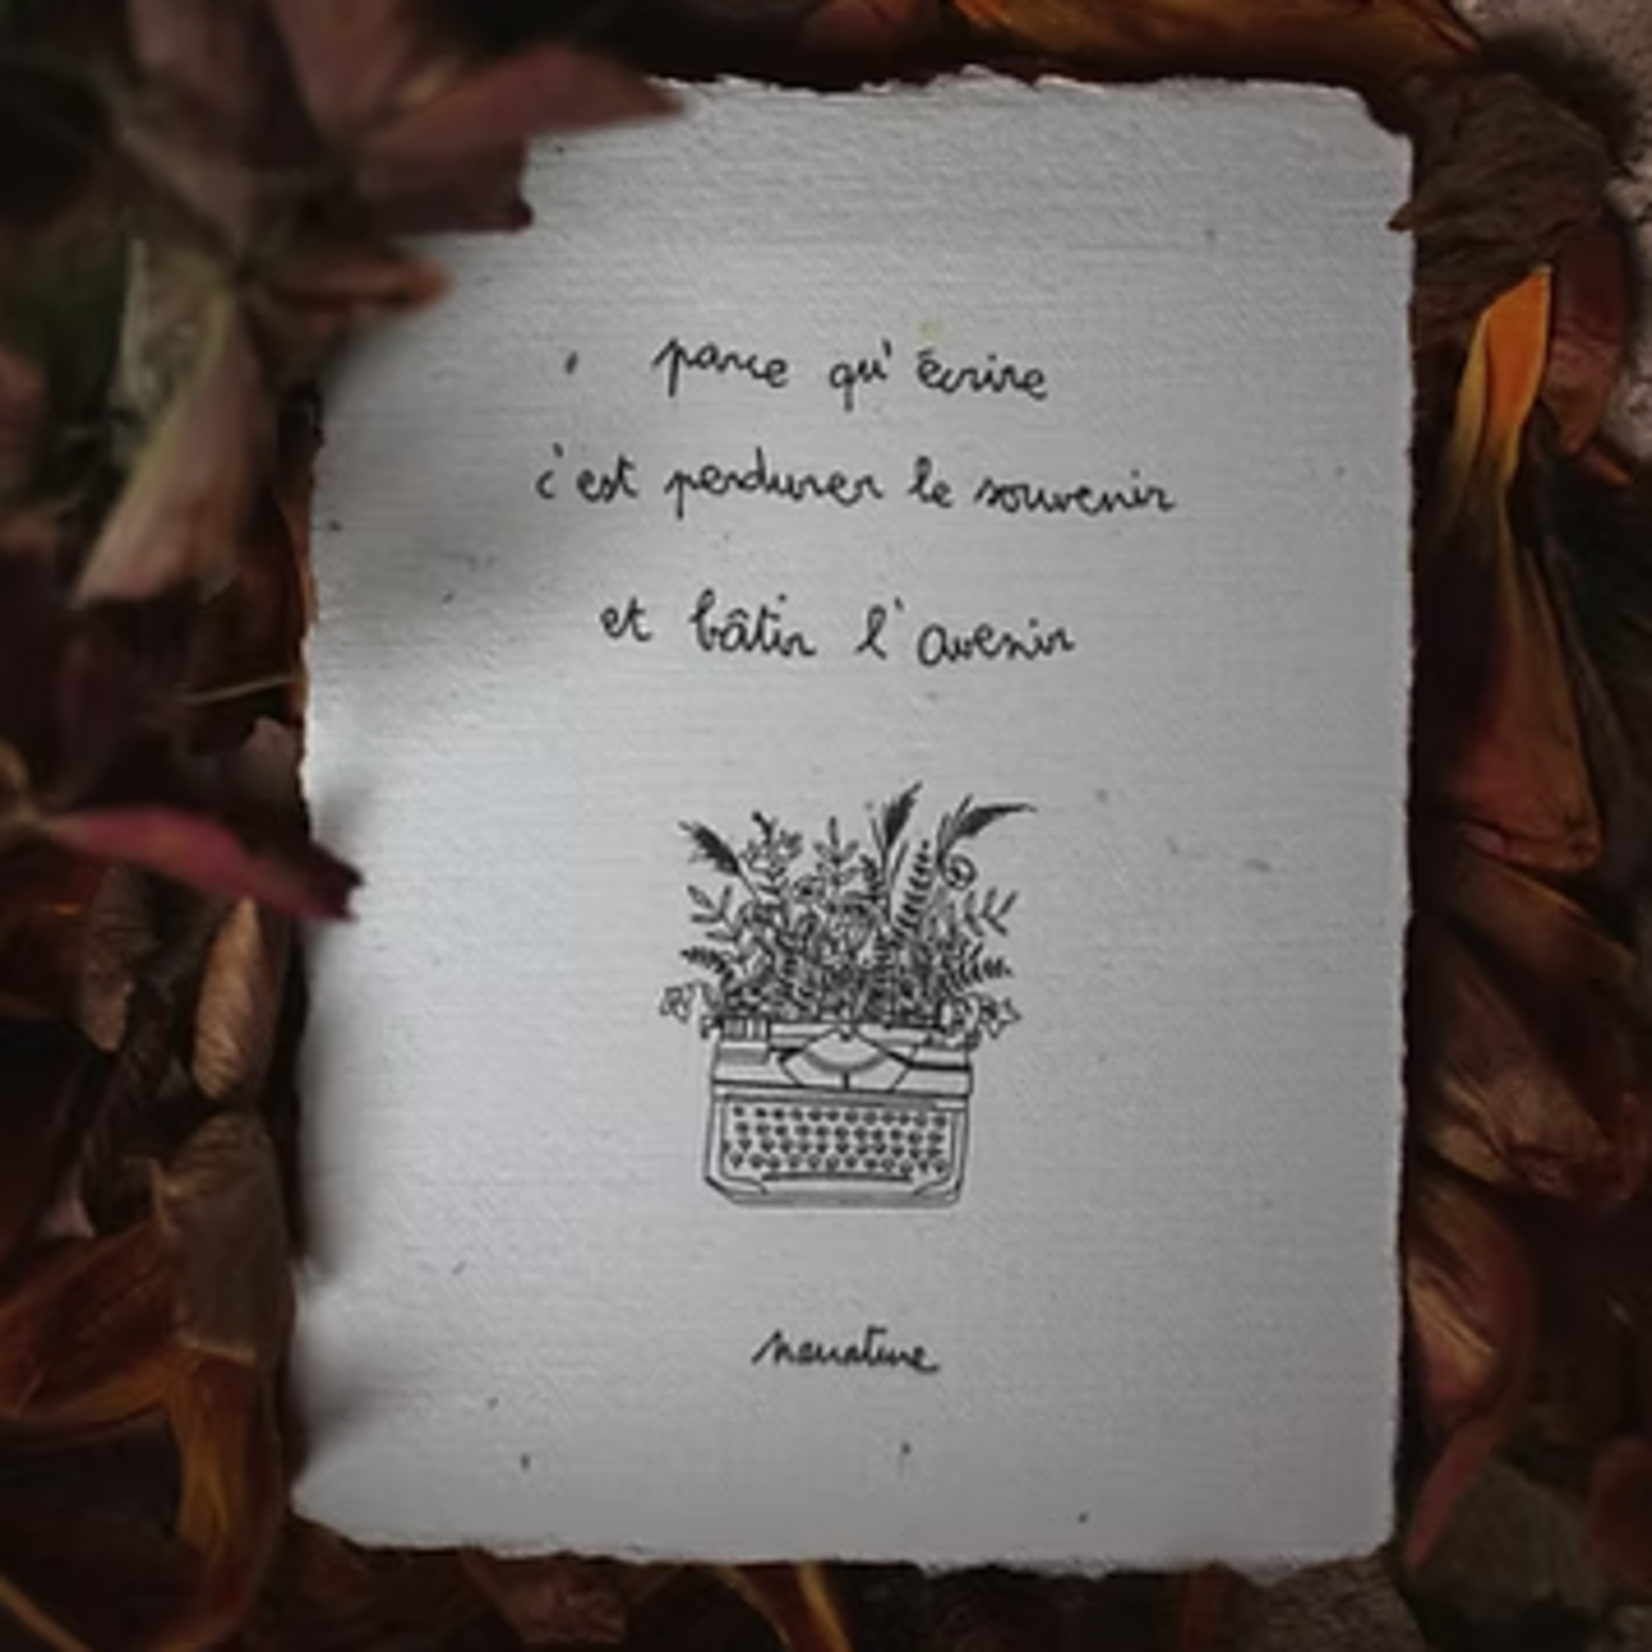 parce qu'écrire
c'est perdurer le souvenir
et bâtir l'avenir
narrature